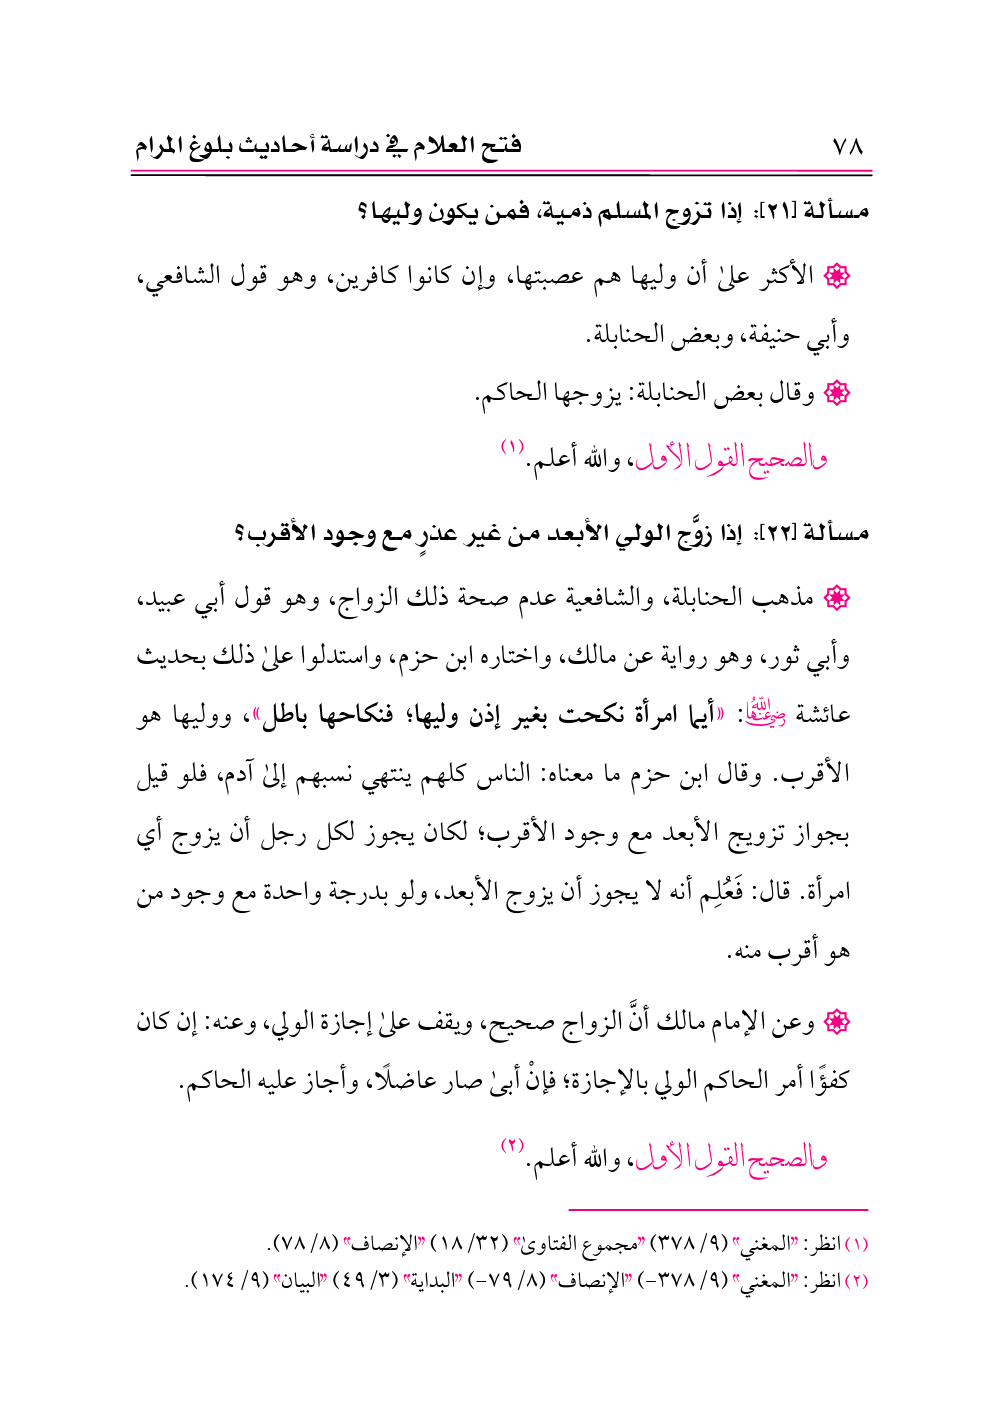 ٧٨ فتح العلام في دراسة أحاديث بلوغ المرام
مسألة [٢١]: إذا تزوج المسلم ذمية، فمن يكون وليها؟
الأكثر علىٰ أن وليها هم عصبتها، وإن كانوا كافرين، وهو قول الشافعي،
وأبي حنيفة، وبعض الحنابلة.
وقال بعض الحنابلة: يزوجها الحاكم.
والصحيح القول الأول، والله أعلم.(١)
مسألة [٢٢]: إذا زوَّج الولي الأبعد من غير عذرٍ مع وجود الأقرب؟
مذهب الحنابلة، والشافعية عدم صحة ذلك الزواج، وهو قول أبي عبيد،
وأبي ثور، وهو رواية عن مالك، واختاره ابن حزم، واستدلوا علىٰ ذلك بحديث
عائشة رضي الله عنها: «أيما امرأة نكحت بغير إذن وليها؛ فنكاحها باطل»، ووليها هو
الأقرب. وقال ابن حزم ما معناه: الناس كلهم ينتهي نسبهم إلىٰ آدم، فلو قيل
بجواز تزويج الأبعد مع وجود الأقرب؛ لكان يجوز لكل رجل أن يزوج أي
امرأة. قال: فَعُلِم أنه لا يجوز أن يزوج الأبعد، ولو بدرجة واحدة مع وجود من
هو أقرب منه.
وعن الإمام مالك أنَّ الزواج صحيح، ويقف علىٰ إجازة الولي، وعنه: إن كان
كفؤًا أمر الحاكم الولي بالإجازة؛ فإنْ أبىٰ صار عاضلًا، وأجاز عليه الحاكم.
والصحيح القول الأول، والله أعلم.(٢)
(١) انظر: "المغني" (٩/ ٣٧٨) "مجموع الفتاوىٰ" (٣٢/ ١٨) "الإنصاف" (٨/ ٧٨).
(٢) انظر: "المغني" (٩/ ٣٧٨-) "الإنصاف" (٨/ ٧٩-) "البداية" (٣/ ٤٩) "البيان" (٩/ ١٧٤).